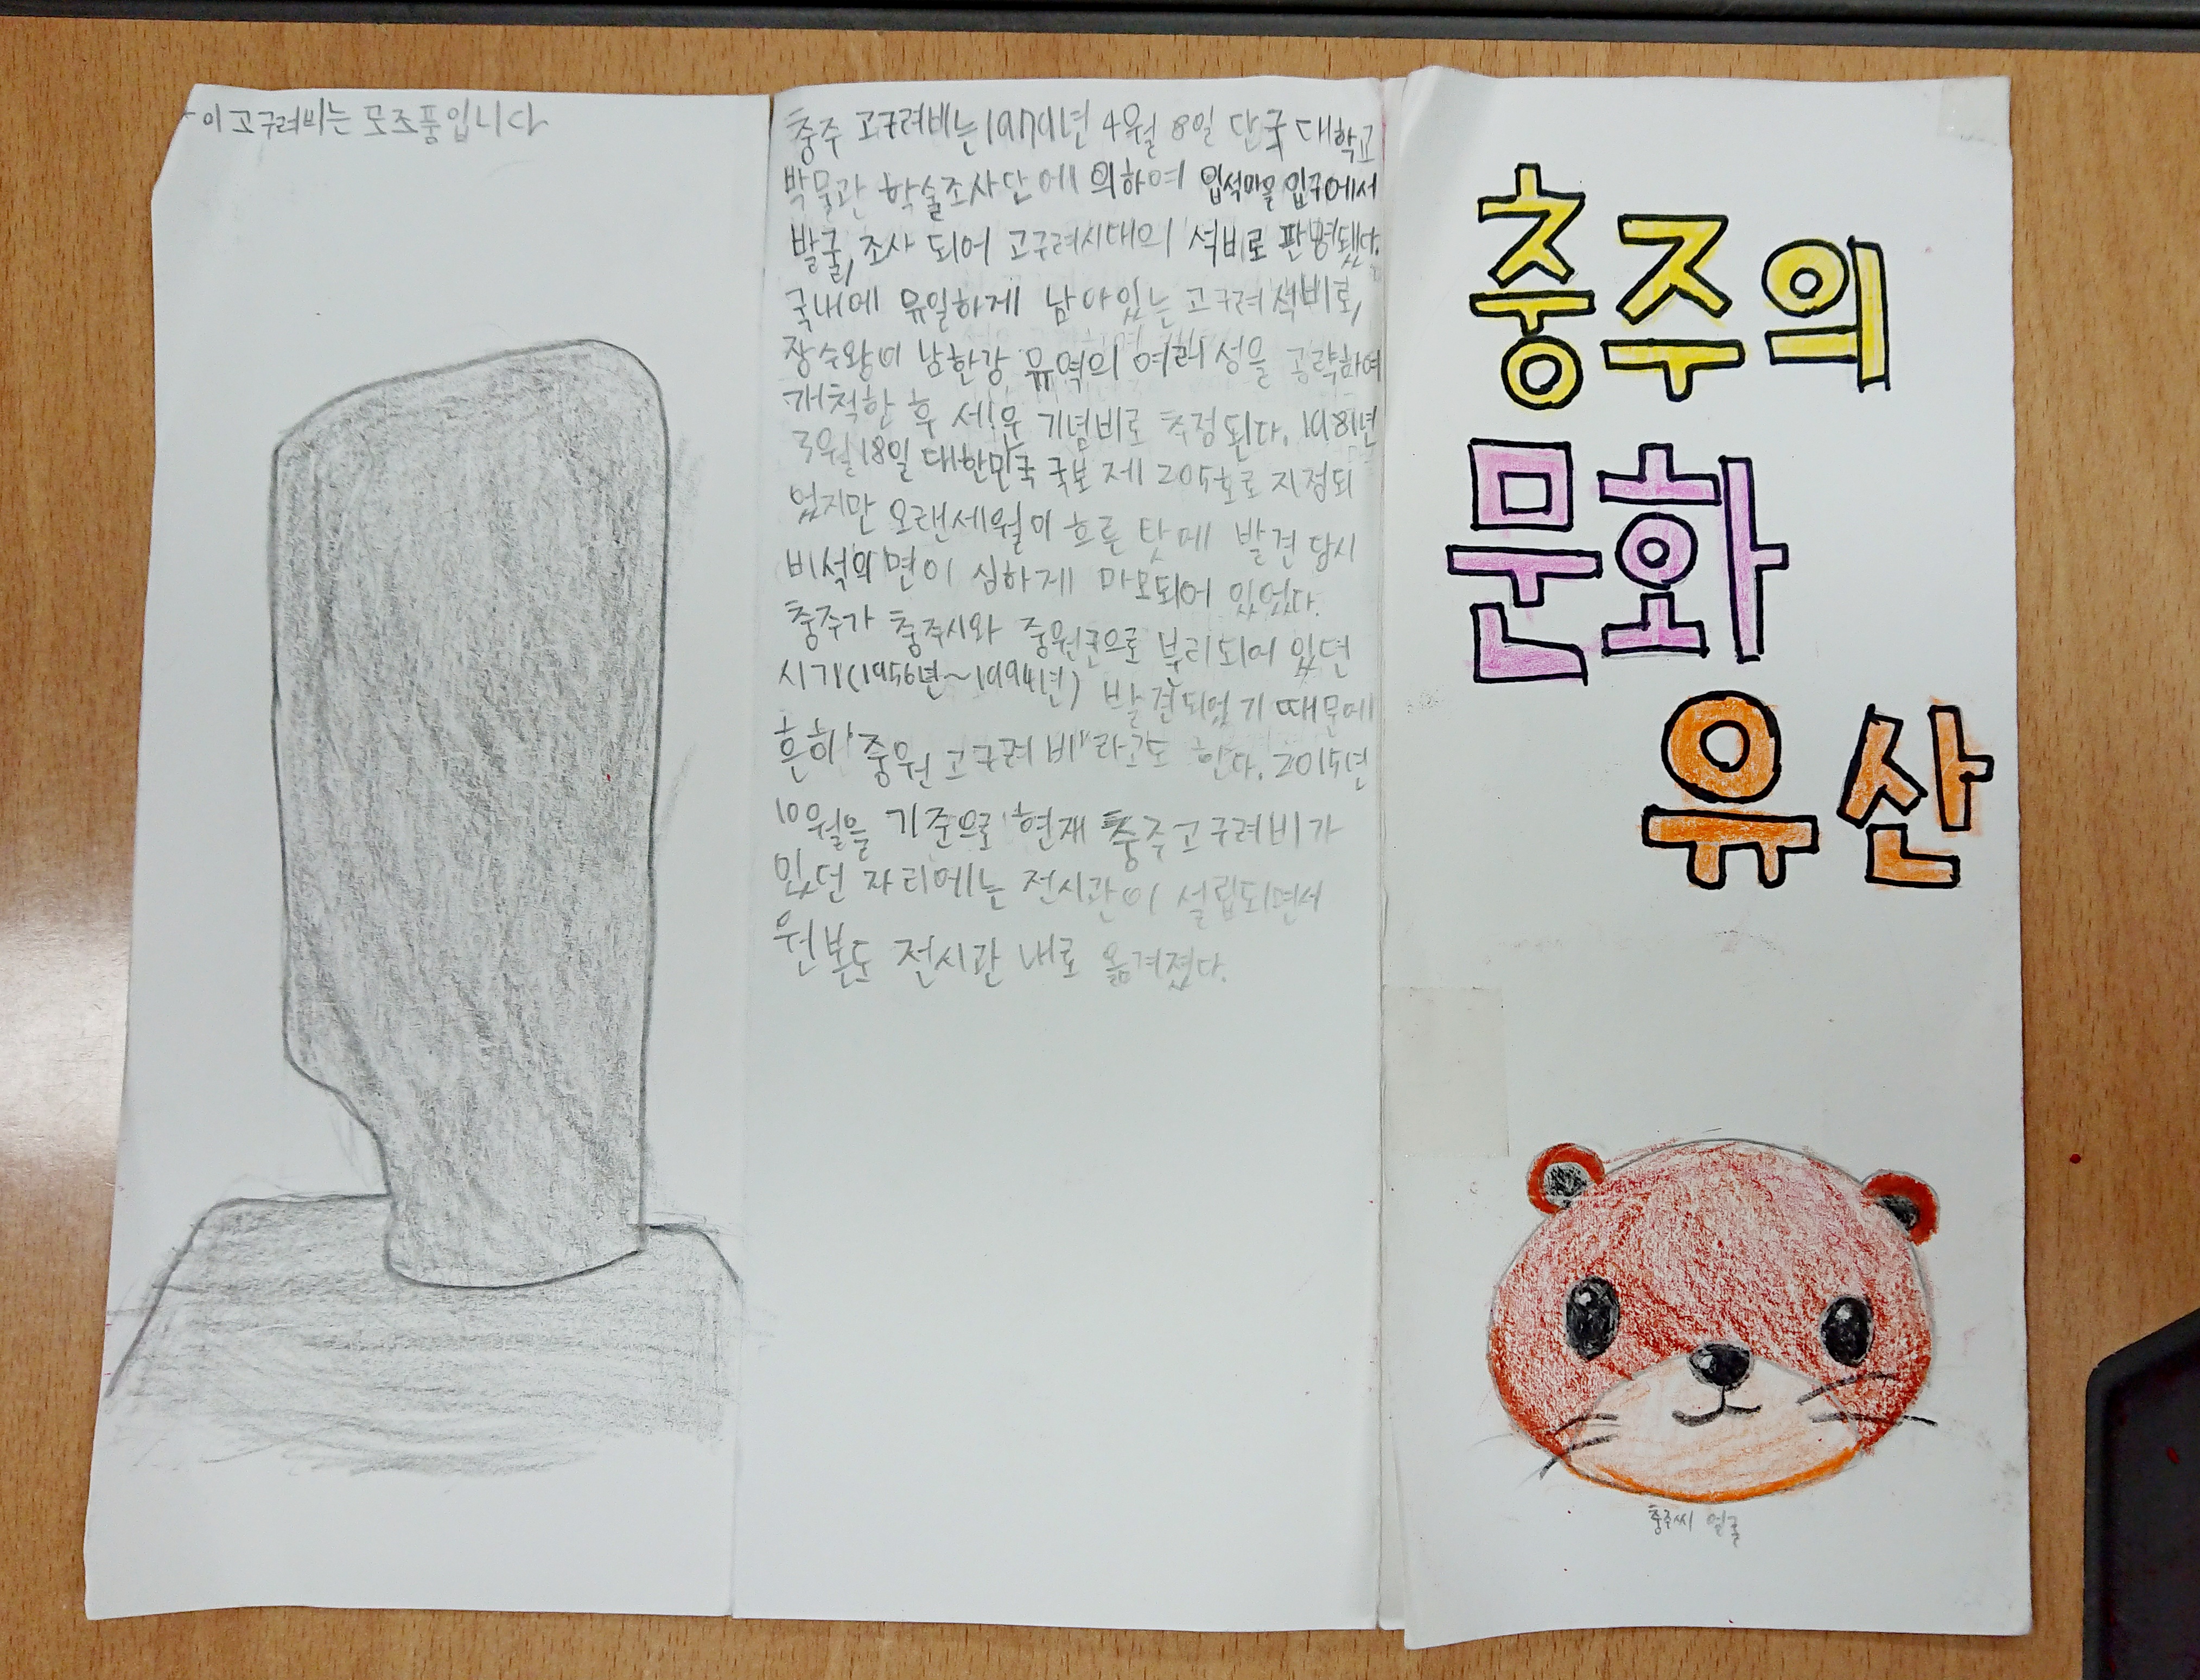 이 고구려비는 모조품입니다
충주 고구려비는 1979년 4월 8일 단국 대학교
박물관 학술조사단에 의하여 입석마을 입구에서
발굴, 조사 되어 고구려시대의 석비로 판명됐다.
국내에 유일하게 남아있는 고구려 석비로,
장수왕이 남한강 유역의 여러 성을 공략하여
개척한 후 세운 기념비로 추정된다. 1981년
3월 18일 대한민국 국보 제 205호로 지정되
었지만 오랜세월이 흐른 탓에 발견 당시
비석의 면이 심하게 마모되어 있었다.
충주가 충주시와 중원군으로 분리되어 있던
시기(1956년~1994년) 발견되었기 때문에
흔히 '중원 고구려 비"라고도 한다. 2015년
10월을 기준으로 현재 충주고구려비가
있던 자리에는 전시관이 설립되면서
원본도 전시관 내로 옮겨졌다.
충주의
문화
유산
충주씨 얼굴